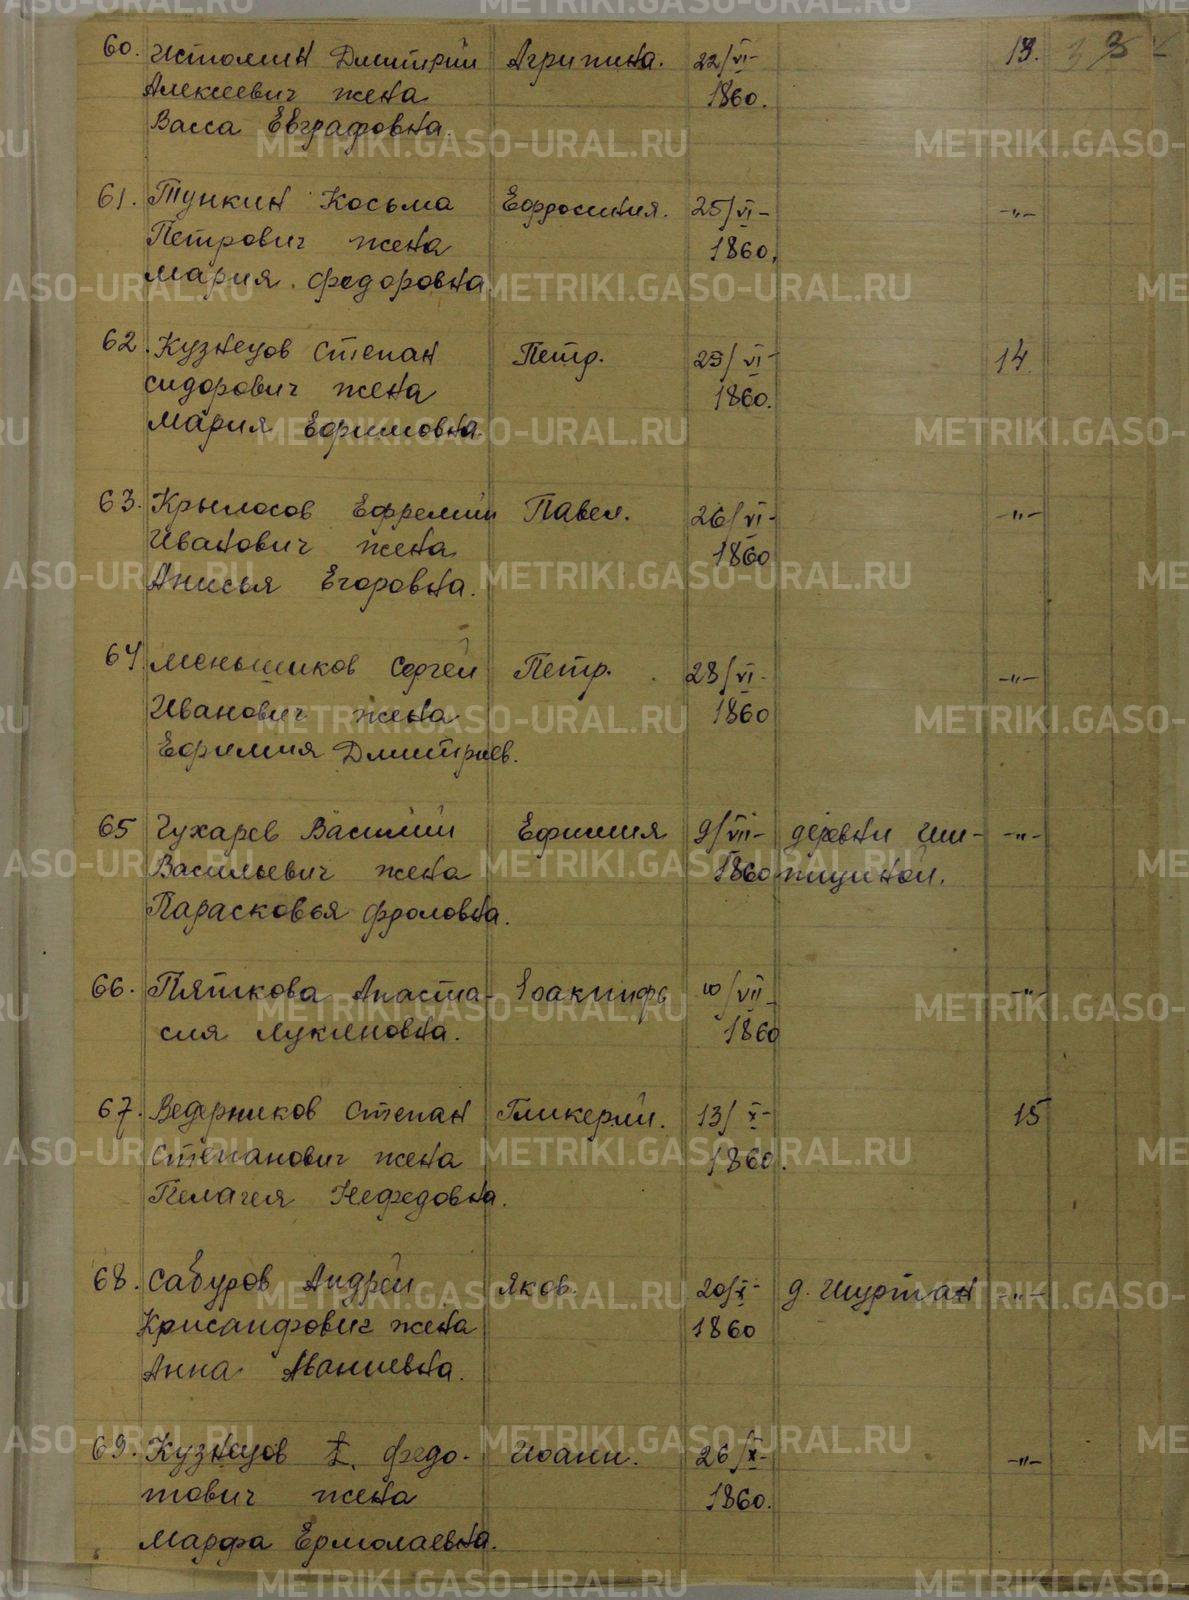 60. Истомин Дмитрий Агрипина. 22/VI- 13. 3
Алексеевич жена 1860.
Васса Евграфовна.
61. Тункин Косьма Ефросиния. 25/VI- -"-
Петрович жена 1860.
Мария Федоровна.
62. Кузнецов Степан Петр. 25/VI- 14.
Сидорович жена 1860.
Мария Ефимовна
63. Крылосов Ефремий Павел. 26/VI- -"-
Иванович жена 1860
Анисья Егоровна.
64. Меньшиков Сергей Петр. 28/VI- -"-
Иванович жена 1860
Ефимия Дмитриев.
65 Чухарев Василий Ефимия 9/VII- деревни Ши- -"-
Васильевич жена 1860 пициной.
Парасковья Фроловна.
66. Пяткова Анаста- Иоакинфь 10/VII -"-
сия Лукиновна. 1860
67. Ведерников Степан Гликерии. 13/X- 15
Степанович жена 1860.
Пелагея Нефедовна.
68. Сабуров Андрей Яков. 20/X- д. Шуртан -"-
Крисанфович жена 1860
Анна Иваниевна.
69. Кузнецов Федо- Иоанн. 26/X- -"-
тович жена 1860.
Марфа Ермолаевна.
METRIKI.GASO-URAL.RU